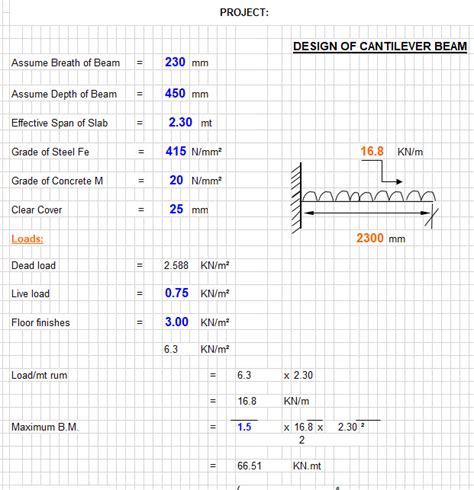 PROJECT:
DESIGN OF CANTILEVER BEAM
Assume Breath of Beam = 230 mm
Assume Depth of Beam = 450 mm
Effective Span of Slab = 2.30 mt
Grade of Steel Fe = 415 N/mm²
16.8 KN/m
Grade of Concrete M = 20 N/mm²
Clear Cover = 25 mm
2300 mm
Loads:
Dead load = 2.588 KN/m²
Live load = 0.75 KN/m²
Floor finishes = 3.00 KN/m²
6.3 KN/m²
Load/mt rum = 6.3 x 2.30
= 16.8 KN/m
Maximum B.M. = 1.5 x 16.8 x 2.30 ²
2
= 66.51 KN.mt